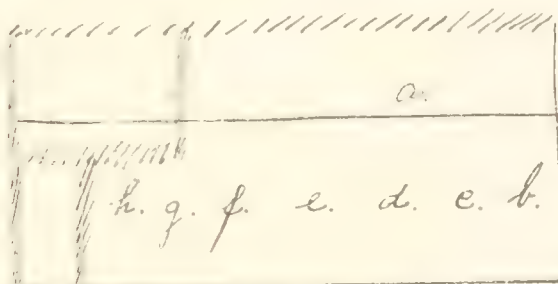 a.
h. g. f. e. d. c. b.